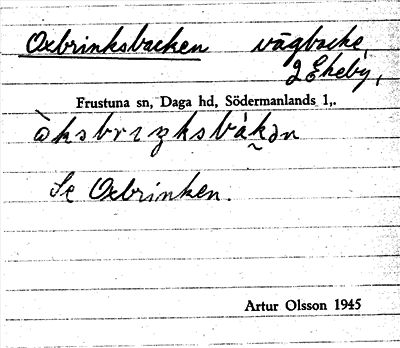 Oxbrinksbacken vägbacke,
2 Ekeby,
Frustuna sn, Daga hd, Södermanlands l,.
ὼksbrɪŋksbák̬ən
Se Oxbrinken.
Artur Olsson 1945